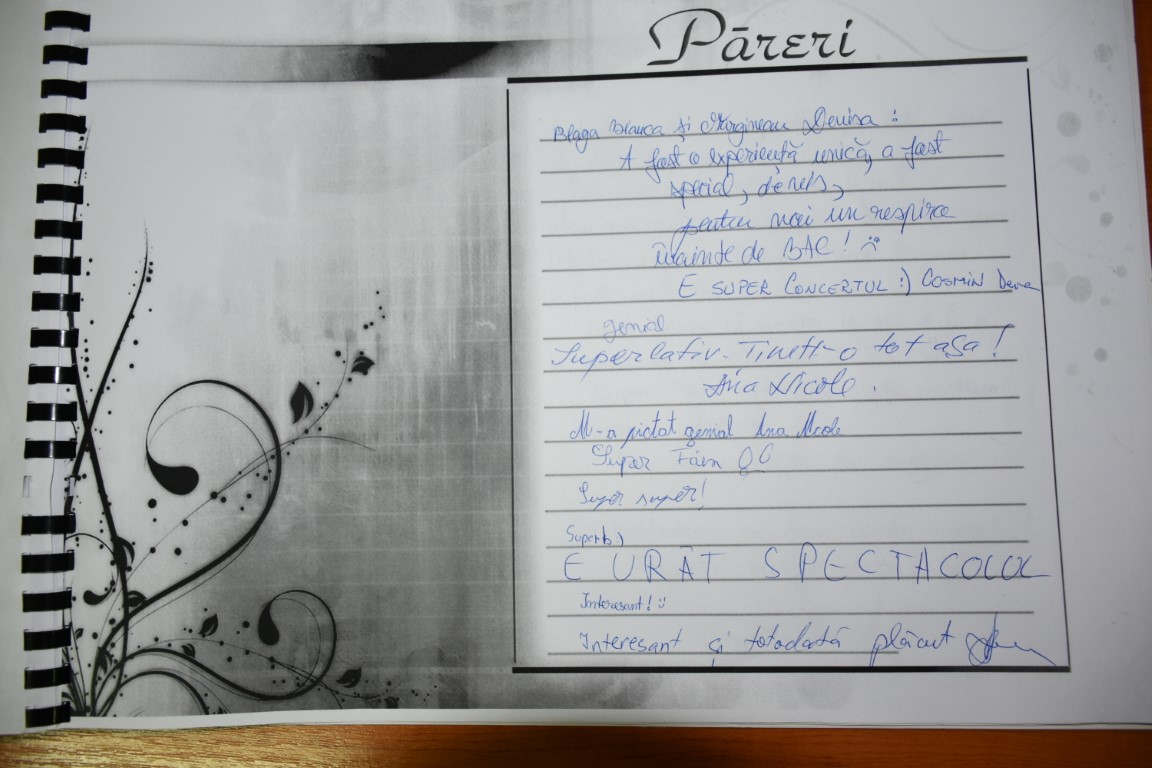 Păreri
Blaga Bianca și Mărginean Denisa :
A fost o experiență unică, a fost
special,
pentru noi un respiro
înainte de BAC! :(
E SUPER CONCERTUL :) COSMIN
genial
Superlativ. Tineti-o tot așa!
Ana Nicole.
M-a pictat genial Ana Nicole
Super
Super super!
Superb :)
E URÂT SPECTACOLUL
Interesant! :)
Interesant și totodată plăcut